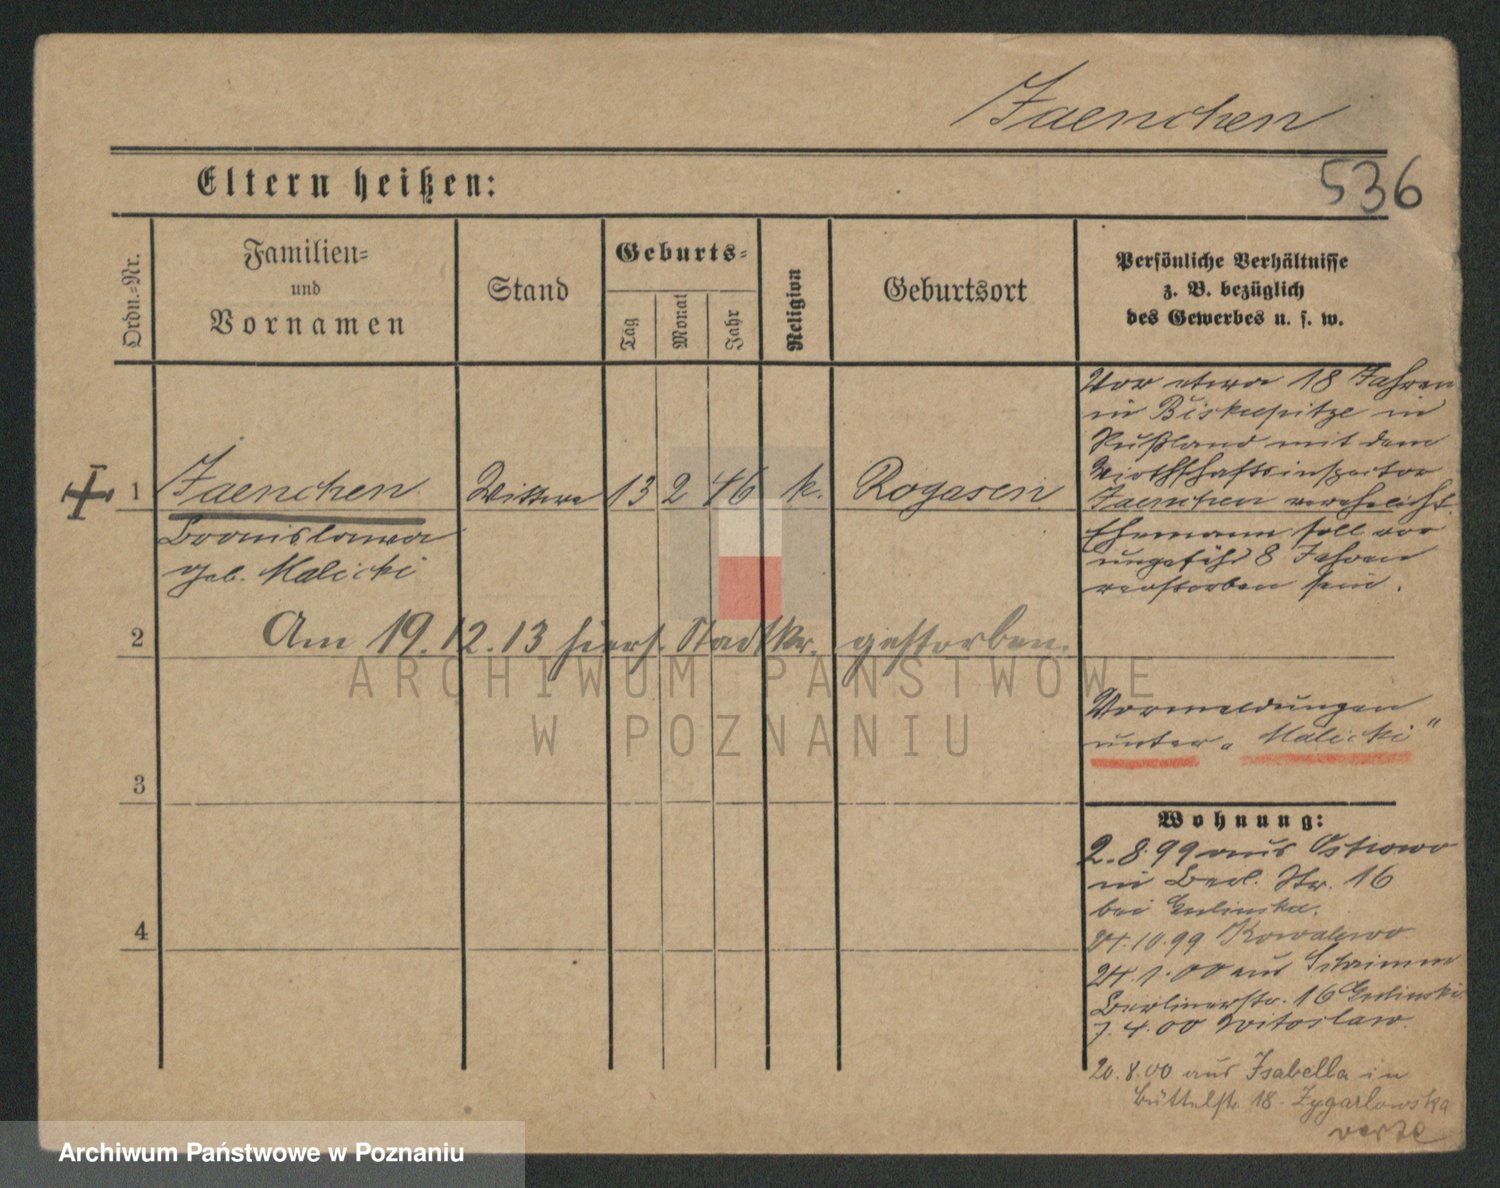 Jaenchen
536
Eltern heißen:
Ordn.-Nr.
Familien-
und
Vornamen
Stand
Geburts-
Tag
Monat
Jahr
Religion
Geburtsort
Persönliche Verhältnisse
z. B. bezüglich
des Gewerbes u. s. w.
1 Jaenchen Wittwe 13 2 46 k. Rogasen
Bronislawa
geb. Malicki
2 Am 19.12.13 hiers. Stadtkr. gestorben.
3
4
Vor etwa 18 Jahren
in Biskupitze in
Rußland mit dem
Wirthschaftsinspector
Jaenchen verehelicht.
Ehemann soll vor
ungefähr 8 Jahren
verstorben sein.
Vormeldungen
unter „Malicki"
Wohnung:
2.8.99 aus Ostrowo
in Berl. Str. 16
bei Gulinska.
24.10.99 Kowalewo
24.1.00 aus Schrimm
Berlinerstr. 16 Gulinski
7.4.00 Witoslaw.
20.8.00 aus Isabella in
Büttelstr. 18. Zygarlowska
verte
ARCHIWUM PAŃSTWOWE
W POZNANIU
Archiwum Państwowe w Poznaniu